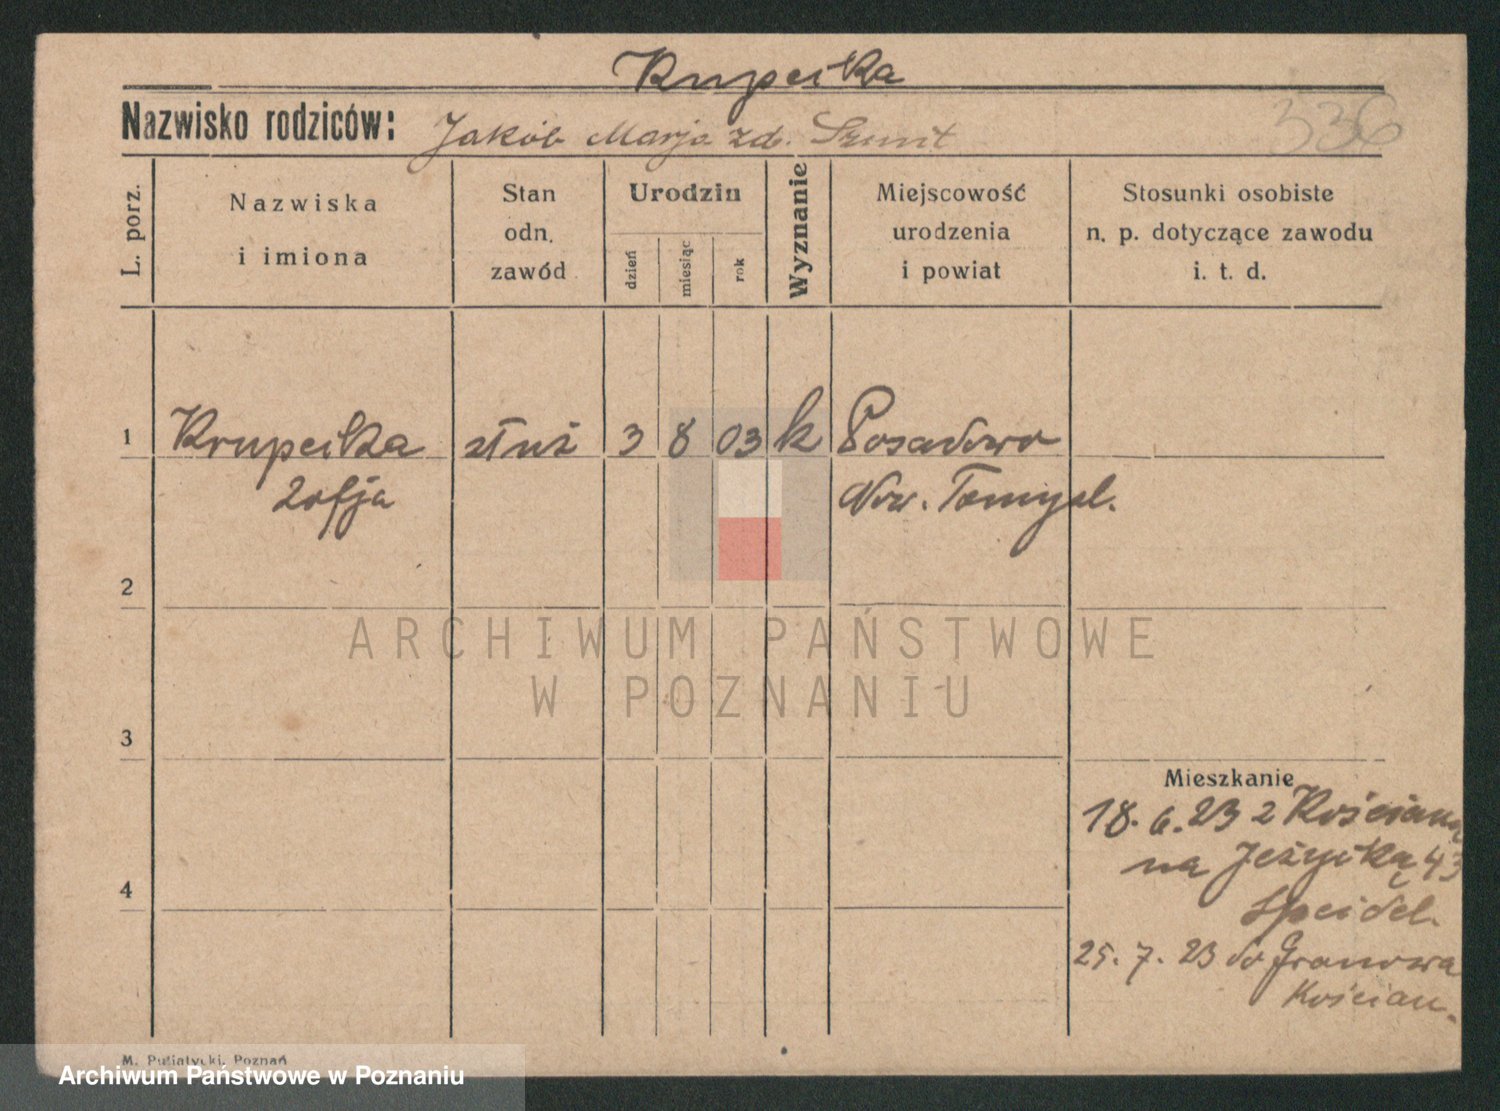 Krupcika
Nazwisko rodziców: Jakób Marja zd. Szmit
336
L. porz.
Nazwiska
i imiona
Stan
odn.
zawód
Urodzin
dzień
miesiąc
rok
Wyznanie
Miejscowość
urodzenia
i powiat
Stosunki osobiste
n. p. dotyczące zawodu
i. t. d.
1 Krupcika służ 3 8 03 k Posadowo
Zofja Now. Tomysl.
2
ARCHIWUM PAŃSTWOWE
W POZNANIU
3
Mieszkanie
18. 6. 23 z Kościana
na Jeżycką 43
4
Speidel.
25. 7. 23 do Granowa
Kościan.
M. Putiatycki, Poznań
Archiwum Państwowe w Poznaniu